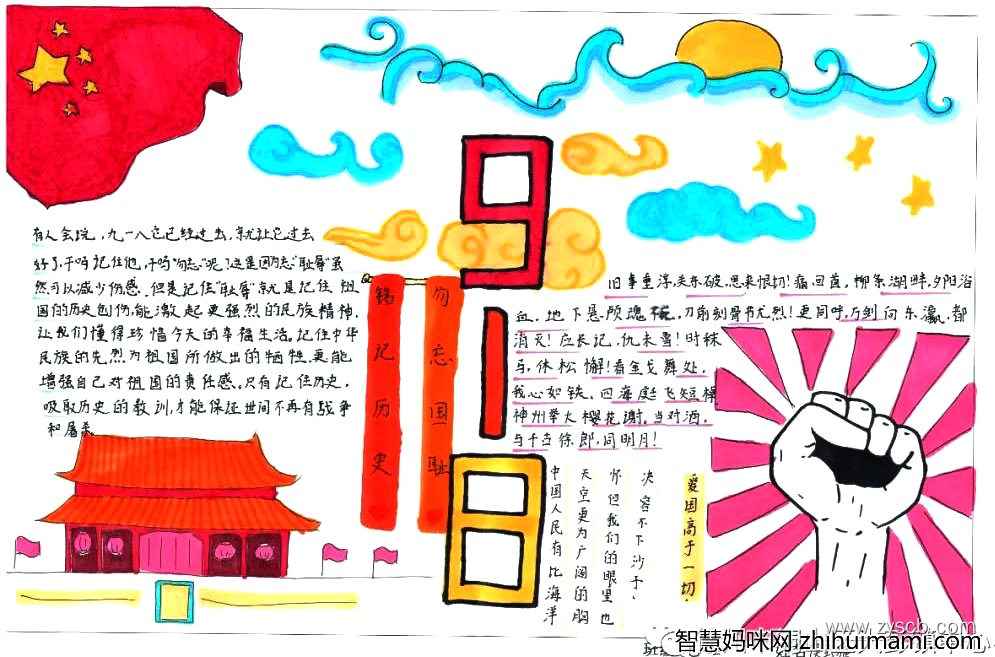 有人会说，九一八它已经过去，就让它过去
好了，干吗记住他，干吗"勿忘"呢！这是因为忘"耻辱"虽
然可以减少伤感，但是记住"耻辱"就是记住祖
国的历史创伤，能激起更强烈的民族精神，
让我们懂得珍惜今天的幸福生活。记住中华
民族的先烈为祖国所做出的牺牲，更能
增强自己对祖国的责任感。只有记住历史，
吸取历史的教训，才能保证世间不再有战争
和屠杀
铭记历史
勿忘国耻
9
1
8
旧事重浮，关东破，思来恨切！痛回首，柳条湖畔，夕阳浴
血。地下悬
刀削刻骨
尤烈！更同呼，万剑向东瀛，都
消灭！应长记，仇未雪！时秣
马，休松懈！看金戈舞处，
我心如铁。四海庭飞短棹
神州举火樱花谢。当对酒，
与千古徐郎，同明月！
中国人民有比海洋
天空更为广阔的胸
怀但我们的眼里也
决容不下沙子，
爱国高于一切。
www.zyscb.com
智慧妈咪网 zhihuimami.com